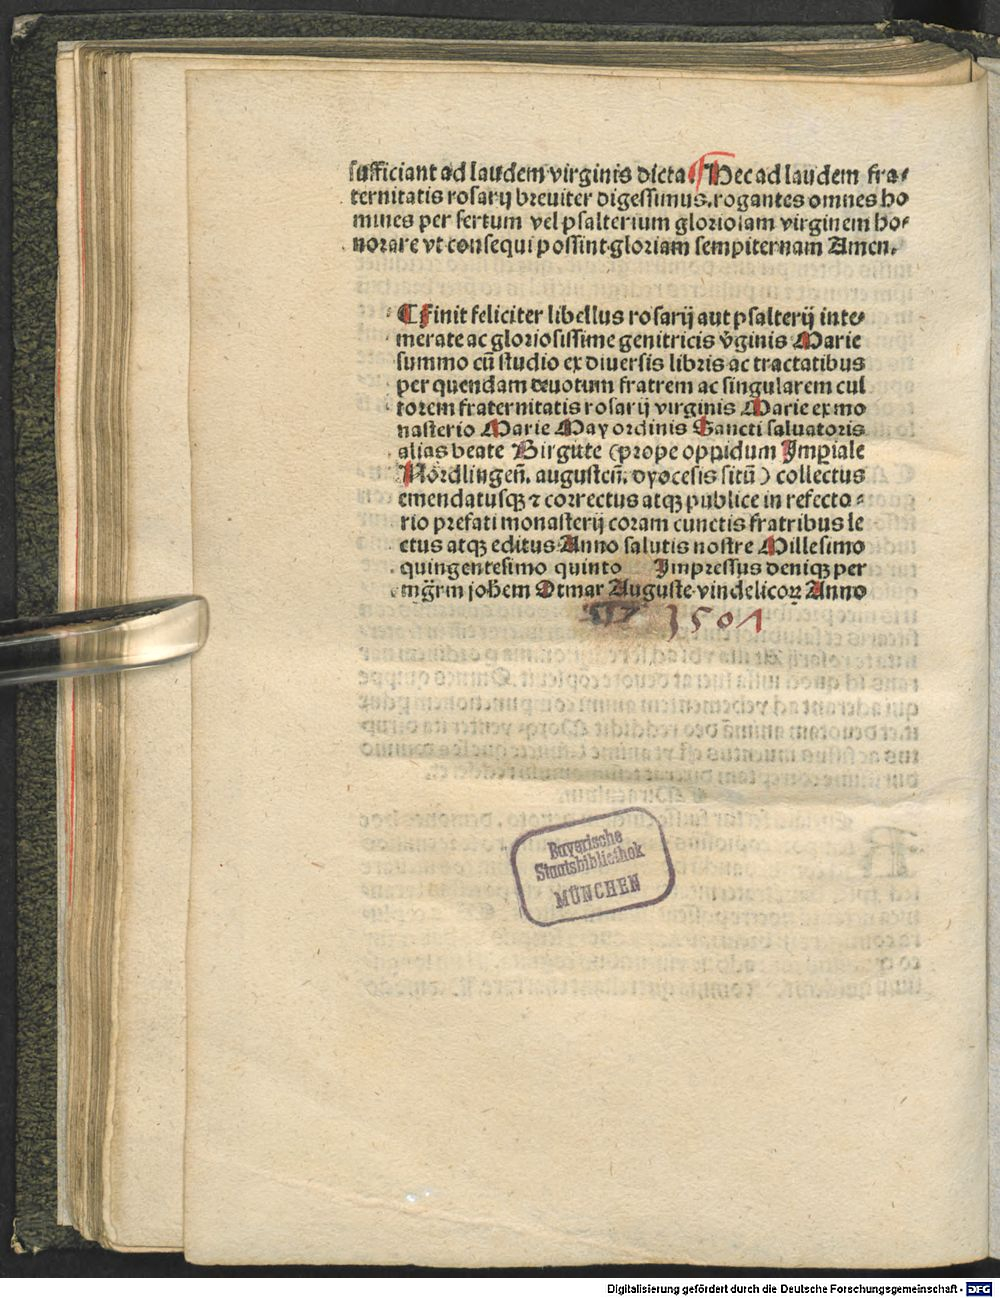 sufficiant ad laudem virginis dicta. Hec ad laudem fra⸗
ternitatis rosarij breuiter digessimus. rogantes omnes ho
mines per sertum vel psalterium gloriosam virginem ho⸗
norare vt consequi possint gloriam sempiternam Amen.
¶ Finit feliciter libellus rosarij aut psalterij inte⸗
merate ac gloriosissime genitricis v̄ginis Marie
summo cū studio ex diuersis libris ac tractatibus
per quendam deuotum fratrem ac singularem cul
torem fraternitatis rosarij virginis Marie ex mo
nasterio Marie May ordinis Sancti saluatoris
alias beate Birgitte (prope oppidum Imperiale
Nördlingeñ. augusteñ. dyocesis sitū) collectus
emendatusqꝫ ⁊ correctus atqꝫ publice in refecto⸗
rio prefati monasterij coram cunctis fratribus le
ctus atqꝫ editus Anno salutis nostre Millesimo
quingentesimo quinto Impressus deniqꝫ per
mg̃rm joh̄em Otmar Auguste vindelicoꝝ Anno
1501
Bayerische
Staatsbibliothek
MÜNCHEN
Digitalisierung gefördert durch die Deutsche Forschungsgemeinschaft - DFG